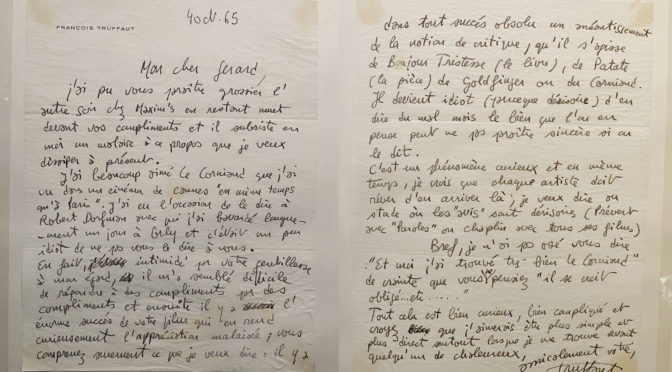 FRANÇOIS TRUFFAUT
4 oct. 65
Mon cher Gérard,
j'ai pu vous paraître grossier l'
autre soir chez Maxim's en restant muet
devant vos compliments et il subsiste en
moi un malaise à ce propos que je veux
dissiper à présent.
J'ai beaucoup aimé Le Corniaud que j'ai
vu dans un cinéma de cannes "en même temps
qu'à Paris". J'ai eu l'occasion de le dire à
Robert Dorfman avec qui j'ai bavardé longue-
-ment un jour à Orly et c'était un peu
idiot de ne pas vous le dire à vous.
En fait, intimidé par votre gentillesse
à mon égard, il m'a semblé difficile
de répondre à des compliments par des
compliments et ensuite il y a l'
énorme succès de votre film qui en rend
curieusement l'appréciation malaisée ; vous
comprenez surement ce que je veux dire : il y a
dans tout succès absolu un anéantissement
de la notion de critique, qu'il s'agisse
de Bonjour Tristesse (le livre), de Patate
(la pièce) de Goldfinger ou du Corniaud.
Il devient idiot (parceque dérisoire) d'en
dire du mal mais le bien que l'on en
pense peut ne pas paraître sincère si on
le dit.
C'est un phénomène curieux et en même
temps, je crois que chaque artiste doit
rêver d'en arriver là, je veux dire au
stade où les "avis" sont dérisoires (Prévert
avec "Paroles" ou chaplin avec tous ses films)
Bref, je n'ai pas osé vous dire
: "Et moi j'ai trouvé très bien le Corniaud"
de crainte que vous ne pensiez "il se croit
obligé... etc.... "
Tout cela est bien curieux, bien compliqué et
croyez que j'aimerais être plus simple et
plus direct surtout lorsque je me trouve devant
quelqu'un de chaleureux,
amicalement vôtre,
truffaut